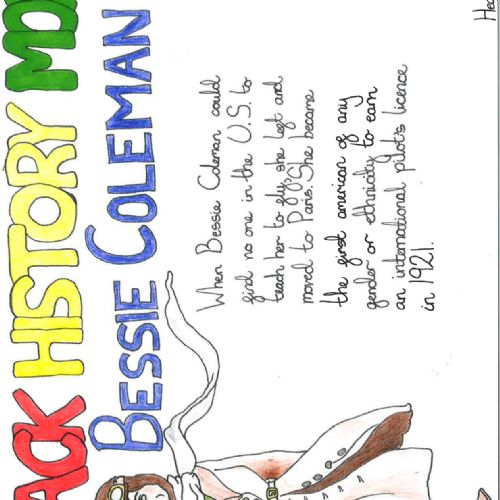 ACK HISTORY MO
BESSIE COLEMAN
When Bessie Coleman could
find no one in the U.S. to
teach her to fly, she left and
moved to Paris. She became
the first american of any
gender or ethnicity to earn
an international pilot's licence
in 1921.
Hea